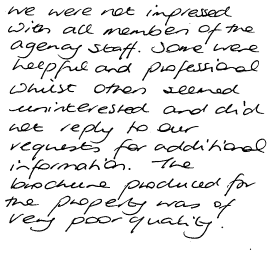 we were not impressed
with all members of the
agency staff. Some were
helpful and professional
whilst others seemed
uninterested and did
not reply to our
requests for additional
information. The
brochure produced for
the property was of
very poor quality.